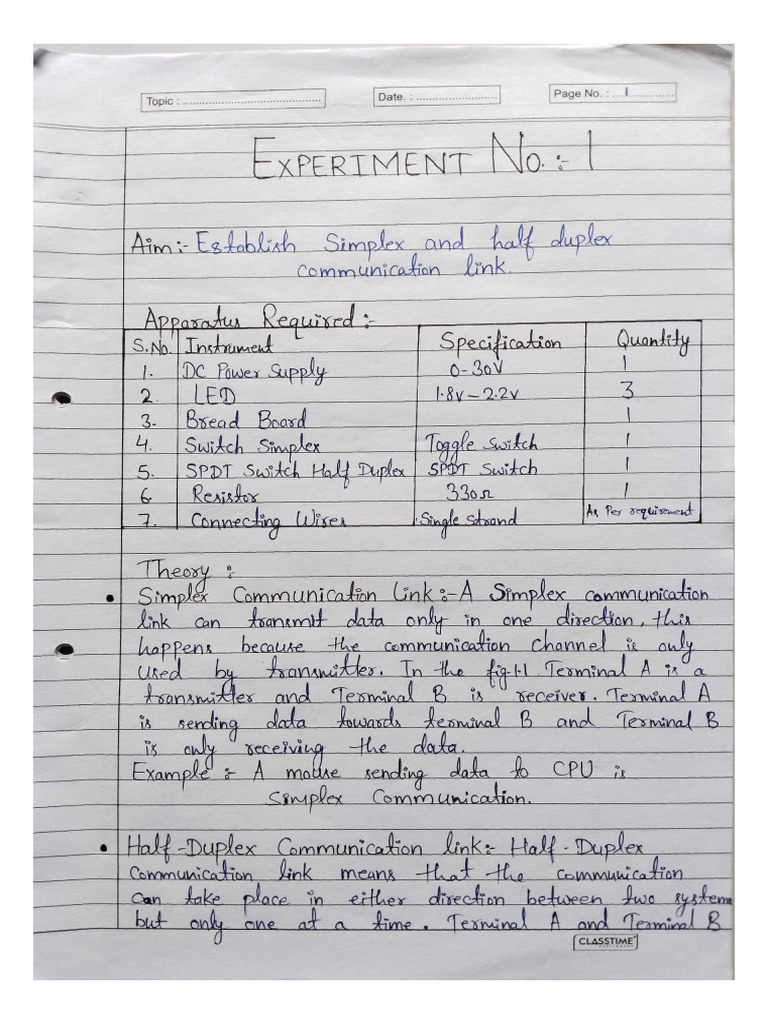 Topic : ............................................
Date. : ..........................
Page No. : ....1...............
EXPERIMENT No. :- 1
Aim :- Establish Simplex and half duplex
communication link.
Apparatus Required :-
S.No. Instrument Specification Quantity
1. DC Power Supply 0-30V 1
2. LED 1.8v - 2.2v 3
3. Bread Board 1
4. Switch Simplex Toggle Switch 1
5. SPDT Switch Half Duplex SPDT Switch 1
6. Resistor 330Ω 1
7. Connecting Wires Single Strand As Per requirement
Theory :-
• Simplex Communication Link :- A Simplex communication
link can transmit data only in one direction, this
happens because the communication channel is only
used by transmitter. In the fig-1.1 Terminal A is a
transmitter and Terminal B is receiver. Terminal A
is sending data towards terminal B and Terminal B
is only receiving the data.
Example :- A mouse sending data to CPU is
Simplex Communication.
• Half-Duplex Communication link :- Half-Duplex
Communication link means that the communication
can take place in either direction between two system
but only one at a time. Terminal A and Terminal B
CLASSTIME